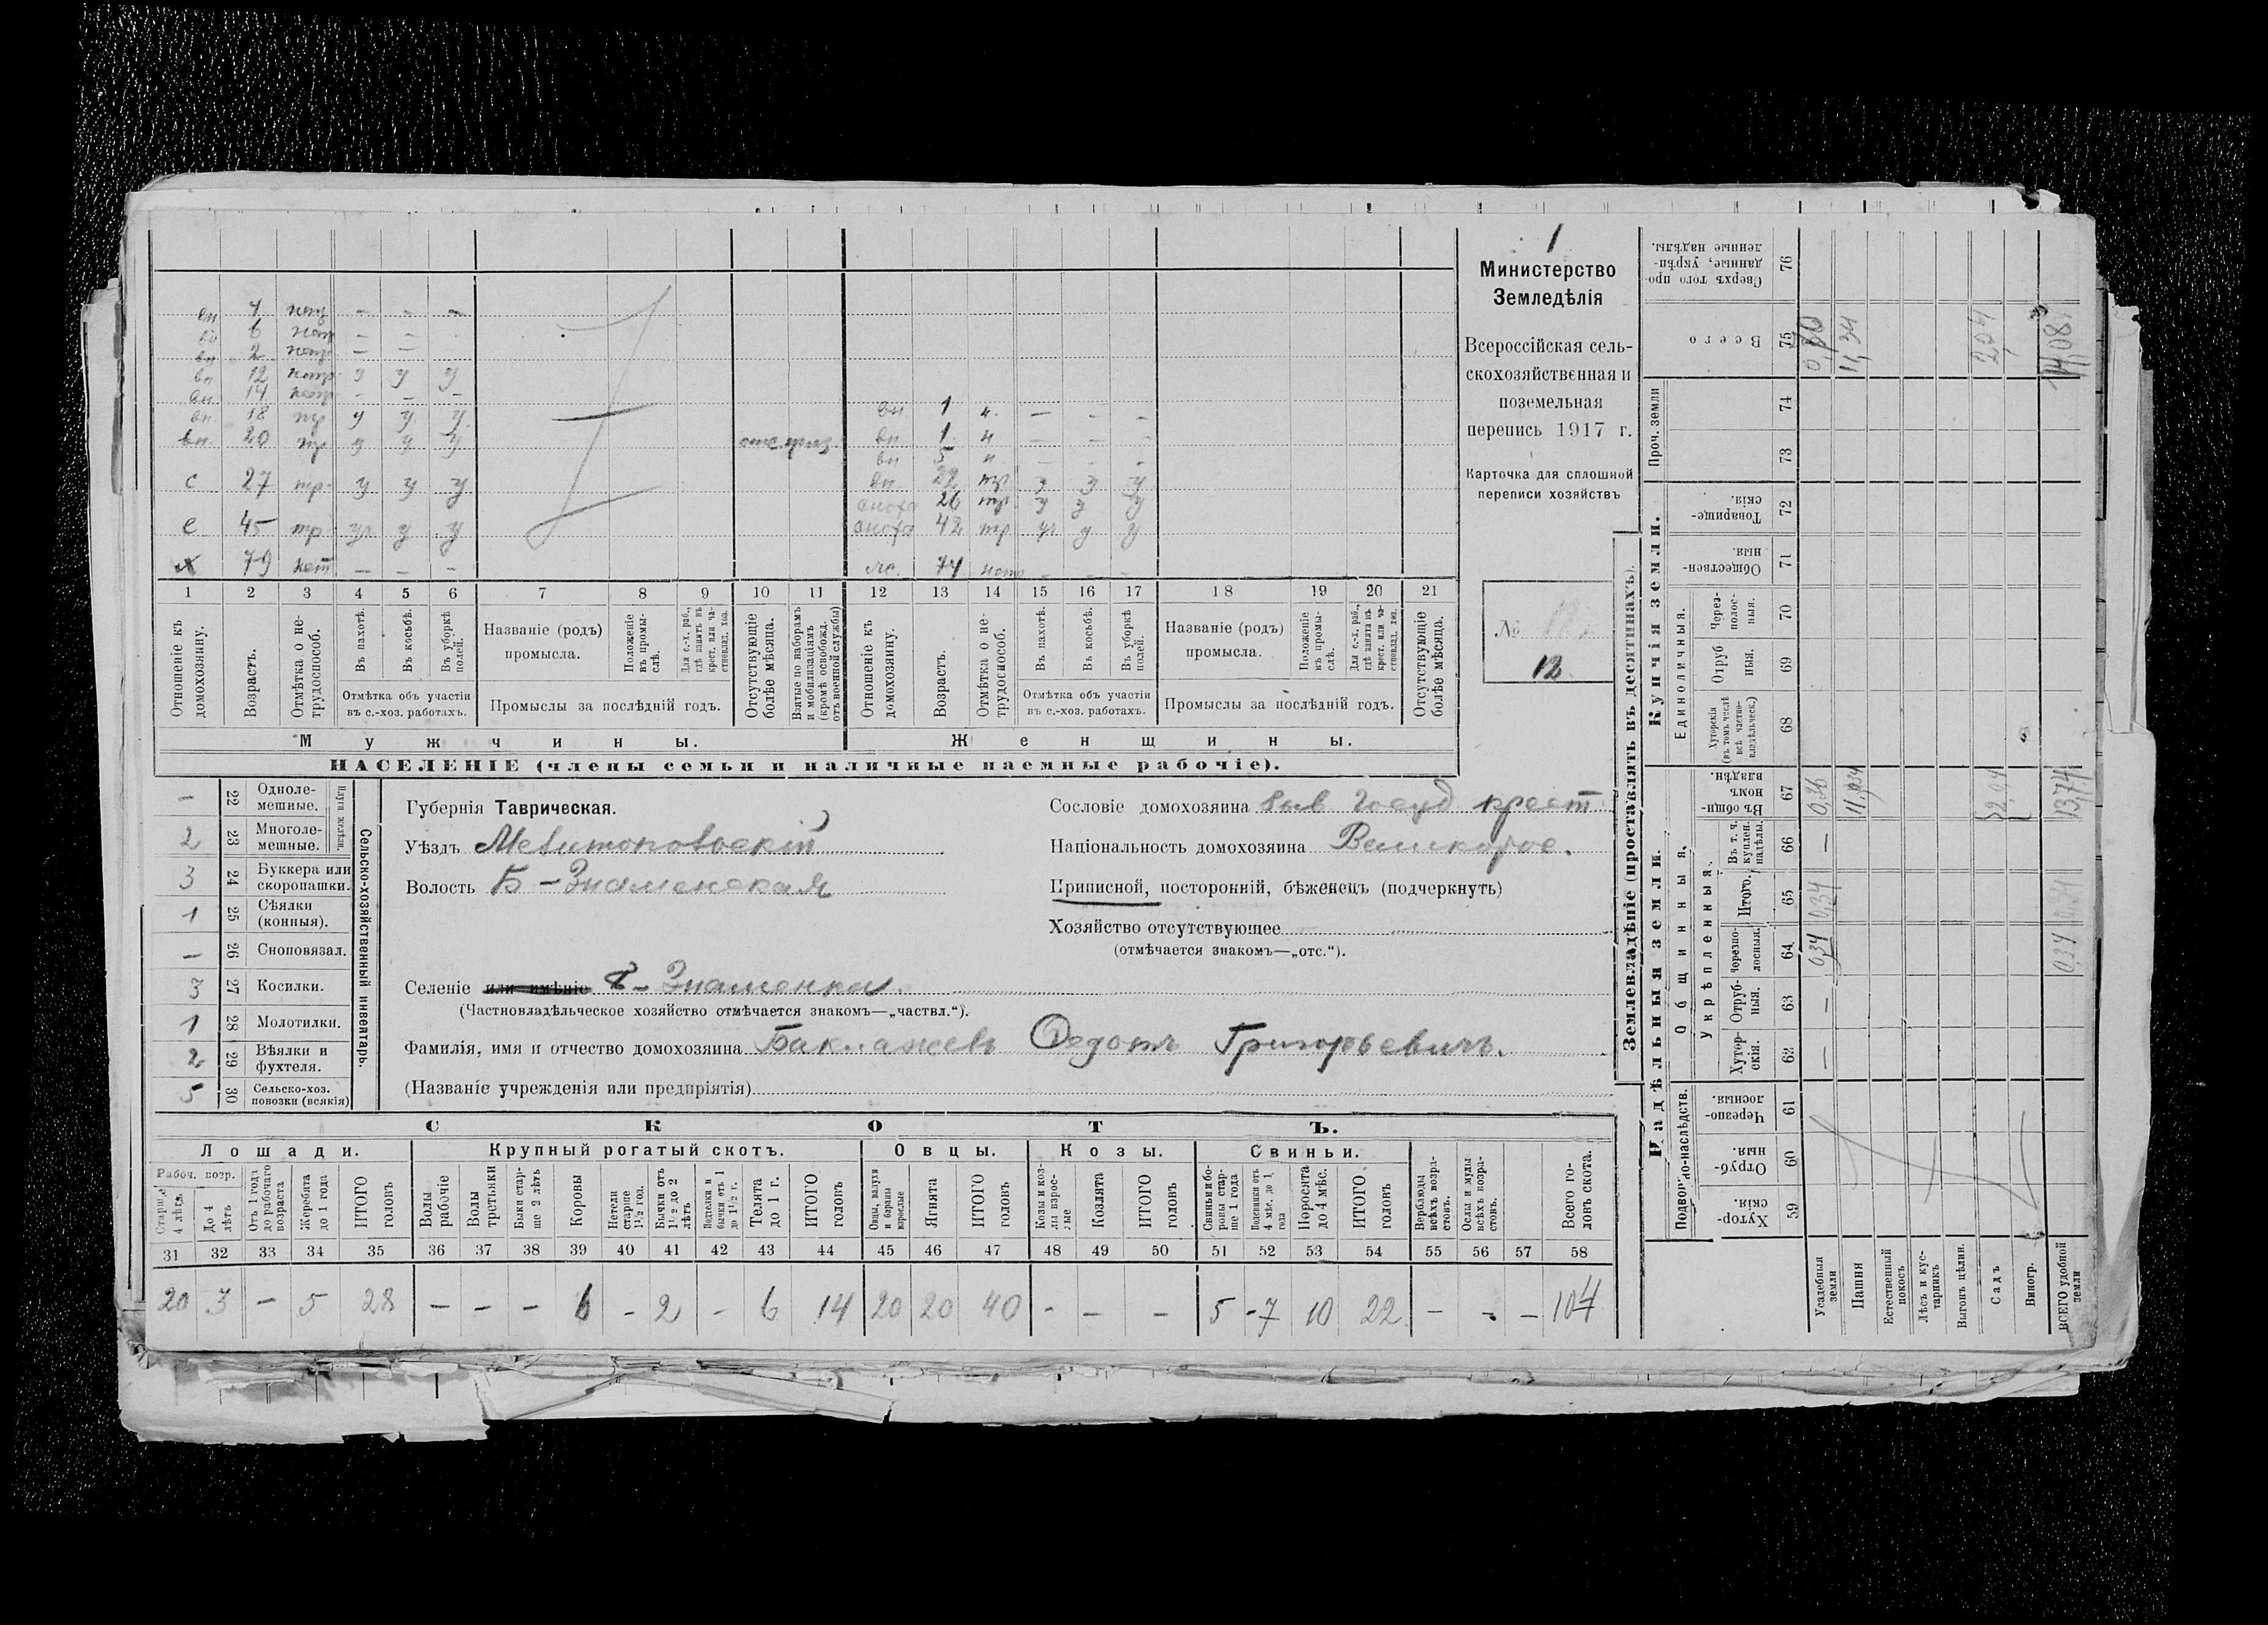 1
Министерство
Земледѣлія
Всероссійская сель-
скохозяйственная и
поземельная
перепись 1917 г.
Карточка для сплошной
переписи хозяйствъ
№
12
вп 4 нет — — —
вп 6 нет — —
вп 2 нет — —
вп 12 нетр у у у
вп 14 нетр - - -
вп 18 тр у у у
вп 20 тр у у у
с 27 тр у у у
с 45 тр ук у у
х 79 нет — — -
вп 1 н. — - -
вп 1 н — - -
вп 5 н — - -
вп 22 тр у у у
сноха 26 тр у у у
сноха 42 тр ук у у
ж. 74 нет - - -
1 2 3 4 5 6 7 8 9 10 11 12 13 14 15 16 17 18 19 20 21
Отношеніе къ домохозяину.
Возрастъ.
Отмѣтка о не-трудоспособ.
Въ пахотѣ.
Въ косьбѣ.
Въ уборкѣ полей.
Отмѣтка объ участіи въ с.-хоз. работахъ.
Названіе (родъ) промысла.
Положеніе въ промы-слѣ.
Для с.-х. раб., гдѣ занятъ въ крест. или ча-стновлад. хоз.
Промыслы за послѣдній годъ.
Отсутствующіе болѣе мѣсяца.
Взятые по наборамъ и мобилизаціямъ (кромѣ освобожд. отъ военной службы)
Отношеніе къ домохозяину.
Возрастъ.
Отмѣтка о не-трудоспособ.
Въ пахотѣ.
Въ косьбѣ.
Въ уборкѣ полей.
Отмѣтка объ участіи въ с.-хоз. работахъ.
Названіе (родъ) промысла.
Положеніе въ промы-слѣ.
Для с.-х. раб., гдѣ занята въ крест. или ча-стновлад. хоз.
Промыслы за послѣдній годъ.
Отсутствующіе болѣе мѣсяца.
Мужчины.
Женщины.
НАСЕЛЕНІЕ (члены семьи и наличные наемные рабочіе).
Сельско-хозяйственный инвентарь.
— 22 Одноле-мешные.
2 23 Многоле-мешные.
3 24 Буккера или скоропашки.
1 25 Сѣялки (конныя).
— 26 Сноповязал.
3 27 Косилки.
1 28 Молотилки.
2 29 Вѣялки и фухтеля.
5 30 Сельско-хоз. повозки (всякія)
Губернія Таврическая.
Уѣздъ Мелитопольскій
Волость Б-Знаменская
Селеніе или имѣніе Б-Знаменка.
(Частновладѣльческое хозяйство отмѣчается знакомъ—„частвл.“).
Фамилія, имя и отчество домохозяина Баклажевъ Федотъ Григорьевичъ.
(Названіе учрежденія или предпріятія)
Сословіе домохозяина быв госуд крест
Національность домохозяина Великорос.
Приписной, посторонній, бѣженецъ (подчеркнуть)
Хозяйство отсутствующее
(отмѣчается знакомъ—„отс.“).
СКОТЪ.
Лошади. Крупный рогатый скотъ. Овцы. Козы. Свиньи.
Рабоч. возр.
Старше 4 лѣтъ
До 4 лѣтъ
Отъ 1 года до рабочаго возраста
Жеребята до 1 года
ИТОГО головъ
Волы рабочіе
Волы третьяки
Быки стар-ше 2 лѣтъ
Коровы
Нетели старше 1½ год.
Бычки отъ 1½ до 2 лѣтъ
Подтелки и бычки отъ 1 до 1½ г.
Телята до 1 г.
ИТОГО головъ
Овцы, валухи и бараны взрослые
Ягнята
ИТОГО головъ
Козы и коз-лы взрос-лые
Козлята
ИТОГО головъ
Свиньи и бо-ровы стар-ше 1 года
Подсвинки отъ 4 мѣс. до 1 года
Поросята до 4 мѣс.
ИТОГО головъ
Верблюды всѣхъ возра-стовъ.
Ослы и мулы всѣхъ возра-стовъ.
Всего го-ловъ скота.
31 32 33 34 35 36 37 38 39 40 41 42 43 44 45 46 47 48 49 50 51 52 53 54 55 56 57 58
20 3 — 5 28 — — — 6 - 2 - 6 14 20 20 40 - — — 5 -7 10 22 — - — 104
Землевладѣніе (проставлять въ десятинахъ).
Надѣльныя земли.
Купчія земли.
Проч. земли
Подворно-наслѣдств.
Общинныя.
Укрѣпленныя.
Единоличныя.
Хутор-скія. 59
Отруб-ныя. 60
Черезпо-лосныя. 61
Хутор-скія. 62 —
Отруб-ныя. 63 —
Черезпо-лосныя. 64 0,34 0,34
Итого. 65 0,34 0,34
Въ т. ч. куплен. надѣлы. 66 —
Въ общин-номъ владѣн. 67 0,36 11,034 13,74
Хуторскія (въ томъ числѣ всѣ частно-владѣльческ.) 68
Отруб-ныя. 69
Через-полос-ныя. 70
Обществен-ныя. 71
Товарище-скія. 72
73 74
Всего 75 11,34 14,08
Сверхъ того про-данные, укрѣп-ленные надѣлы. 76
Усадебныя земли
Пашня
Естественный покосъ
Лѣсъ и кус-тарникъ
Выгонъ цѣлин.
Садъ
Виногр.
ВСЕГО удобной земли